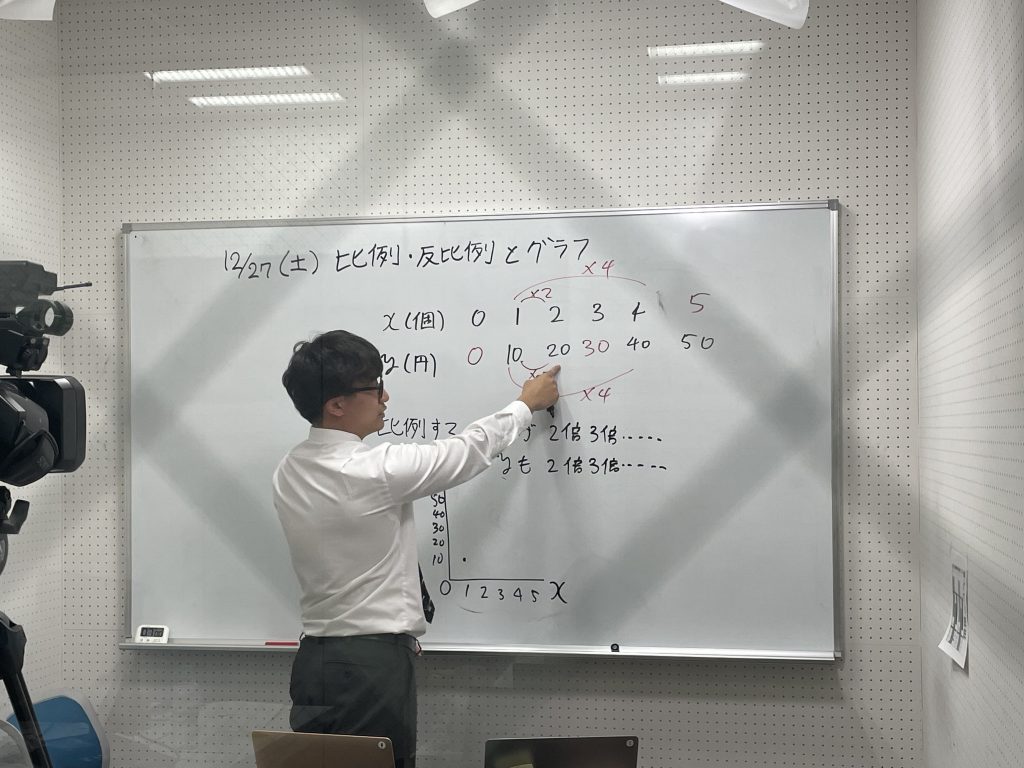 12/27(土) 比例・反比例とグラフ
×4
×2
x(個) 0 1 2 3 4 5
y(円) 0 10 20 30 40 50
×4
比例す 2倍3倍……
yも 2倍3倍……
50
40
30
20
10
0 1 2 3 4 5 x